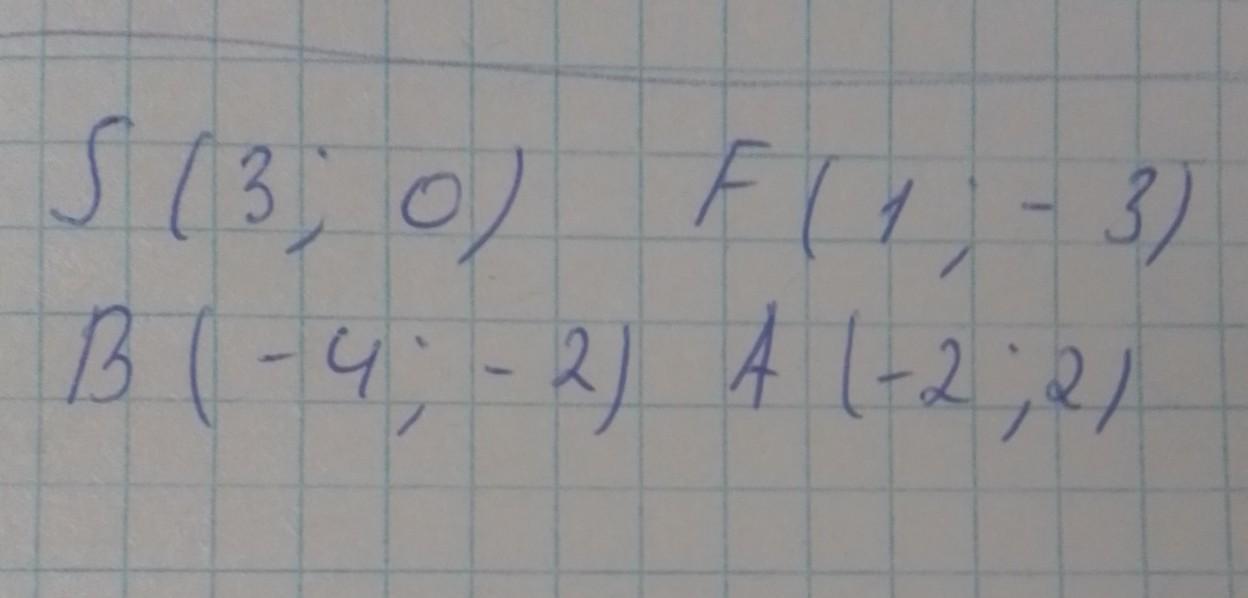 S (3; 0) F (1; -3)
B (-4; -2) A (-2; 2)